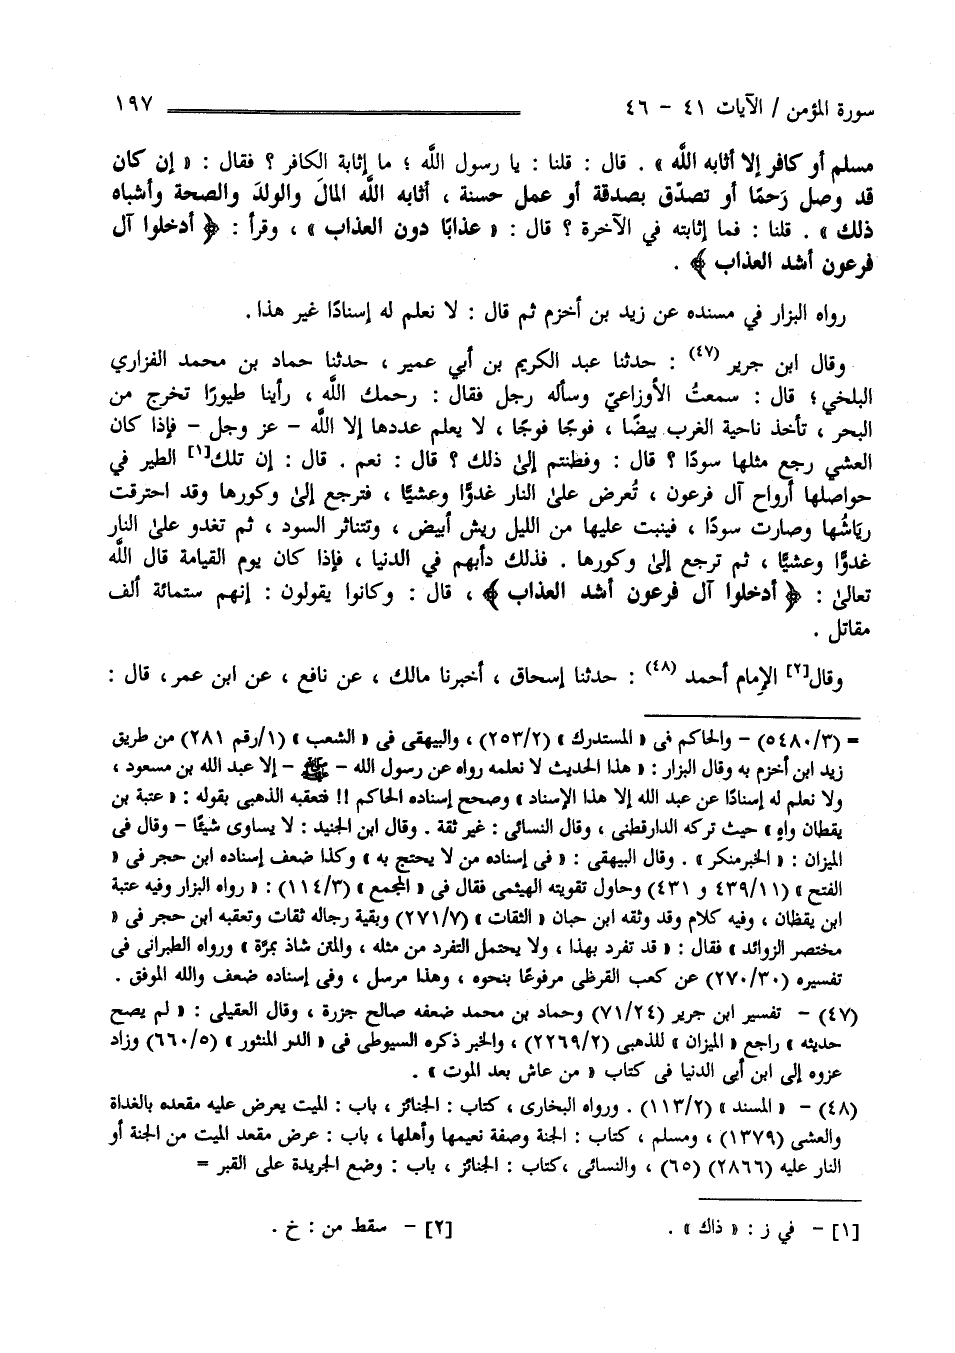 سورة المؤمن / الآيات ٤١ - ٤٦ ١٩٧
مسلم أو كافر إلا أثابه اللَّه » . قال : قلنا : يا رسول اللَّه ؛ ما إثابة الكافر ؟ فقال : « إن كان
قد وصل رَحمًا أو تصدّق بصدقة أو عمل حسنة ، أثابه اللَّه المالَ والولدَ والصحة وأشباه
ذلك » . قلنا : فما إثابته في الآخرة ؟ قال : « عذابًا دون العذاب » ، وقرأ : ﴿ أدخلوا آل
فرعون أشد العذاب ﴾ .
رواه البزار في مسنده عن زيد بن أخزم ثم قال : لا نعلم له إسنادًا غير هذا .
وقال ابن جرير (٤٧) : حدثنا عبد الكريم بن أبي عمير ، حدثنا حماد بن محمد الفزاري
البلخي؛ قال : سمعتُ الأوزاعيّ وسأله رجل فقال : رحمك اللَّه ، رأينا طيورًا تخرج من
البحر ، تأخذ ناحية الغرب بيضًا ، فوجًا فوجًا ، لا يعلم عددها إلا اللَّه - عز وجل - فإذا كان
العشي رجع مثلها سودًا ؟ قال : وفظنتم إلىٰ ذلك ؟ قال : نعم . قال : إن تلك[١] الطير في
حواصلها أرواح آل فرعون ، تُعرض علىٰ النار غدوًّا وعشيًّا ، فترجع إلىٰ وكورها وقد احترقت
ريَاشُها وصارت سودًا ، فينبت عليها من الليل ريش أبيض ، وتتناثر السود ، ثم تغدو علىٰ النار
غدوًّا وعشيًّا ، ثم ترجع إلىٰ وكورها . فذلك دأبهم في الدنيا ، فإذا كان يوم القيامة قال اللَّه
تعالىٰ : ﴿ أدخلوا آل فرعون أشد العذاب ﴾ ، قال : وكانوا يقولون : إنهم ستمائة ألف
مقاتل .
وقال[٢] الإمام أحمد (٤٨) : حدثنا إسحاق ، أخبرنا مالك ، عن نافع ، عن ابن عمر، قال :
= (٥٤٨٠/٣) - والحاكم فى « المستدرك » (٢٥٣/٢) ، والبيهقى فى « الشعب » (١/رقم ٢٨١) من طريق
زيد ابن أخزم به وقال البزار : « هذا الحديث لا نعلمه رواه عن رسول الله - ﷺ - إلا عبد الله بن مسعود ،
ولا نعلم له إسنادًا عن عبد الله إلا هذا الإسناد » وصحح إسناده الحاكم !! فتعقبه الذهبى بقوله : « عتبة بن
يقطان واهٍ » حيث تركه الدارقطنى ، وقال النسائى : غير ثقة . وقال ابن الجنيد : لا يساوى شيئًا - وقال فى
الميزان : « الخبرمنكر » . وقال البيهقى : « فى إسناده من لا يحتج به » وكذا ضعف إسناده ابن حجر فى «
الفتح » (٤٣٩/١١ و ٤٣١) وحاول تقويته الهيثمى فقال فى « المجمع » (١١٤/٣) : « رواه البزار وفيه عتبة
ابن يقظان ، وفيه كلام وقد وثقه ابن حبان « الثقات » (٢٧١/٧) وبقية رجاله ثقات وتعقبه ابن حجر فى «
مختصر الزوائد » فقال : « قد تفرد بهذا ، ولا يحتمل التفرد من مثله ، والمتن شاذ بمرَّة » ورواه الطبرانى فى
تفسيره (٢٧٠/٣٠) عن كعب القرظى مرفوعًا بنحوه ، وهذا مرسل ، وفى إسناده ضعف والله الموفق .
(٤٧) - تفسير ابن جرير (٧١/٢٤) وحماد بن محمد ضعفه صالح جزرة ، وقال العقيلى : « لم يصح
حديثه » راجع « الميزان » للذهبى (٢٢٦٩/٢) ، والخبر ذكره السيوطى فى « الدر المنثور » (٦٦٠/٥) وزاد
عزوه إلى ابن أبى الدنيا فى كتاب « من عاش بعد الموت » .
(٤٨) - « المسند » (١١٣/٢) . ورواه البخارى ، كتاب : الجنائز ، باب : الميت يعرض عليه مقعده بالغداة
والعشى (١٣٧٩) ، ومسلم ، كتاب : الجنة وصفة نعيمها وأهلها ، باب : عرض مقعد الميت من الجنة أو
النار عليه (٢٨٦٦) (٦٥) ، والنسائى ،كتاب : الجنائز ، باب : وضع الجريدة على القبر =
[١] - في ز : « ذاك » . [٢] - سقط من : خ .